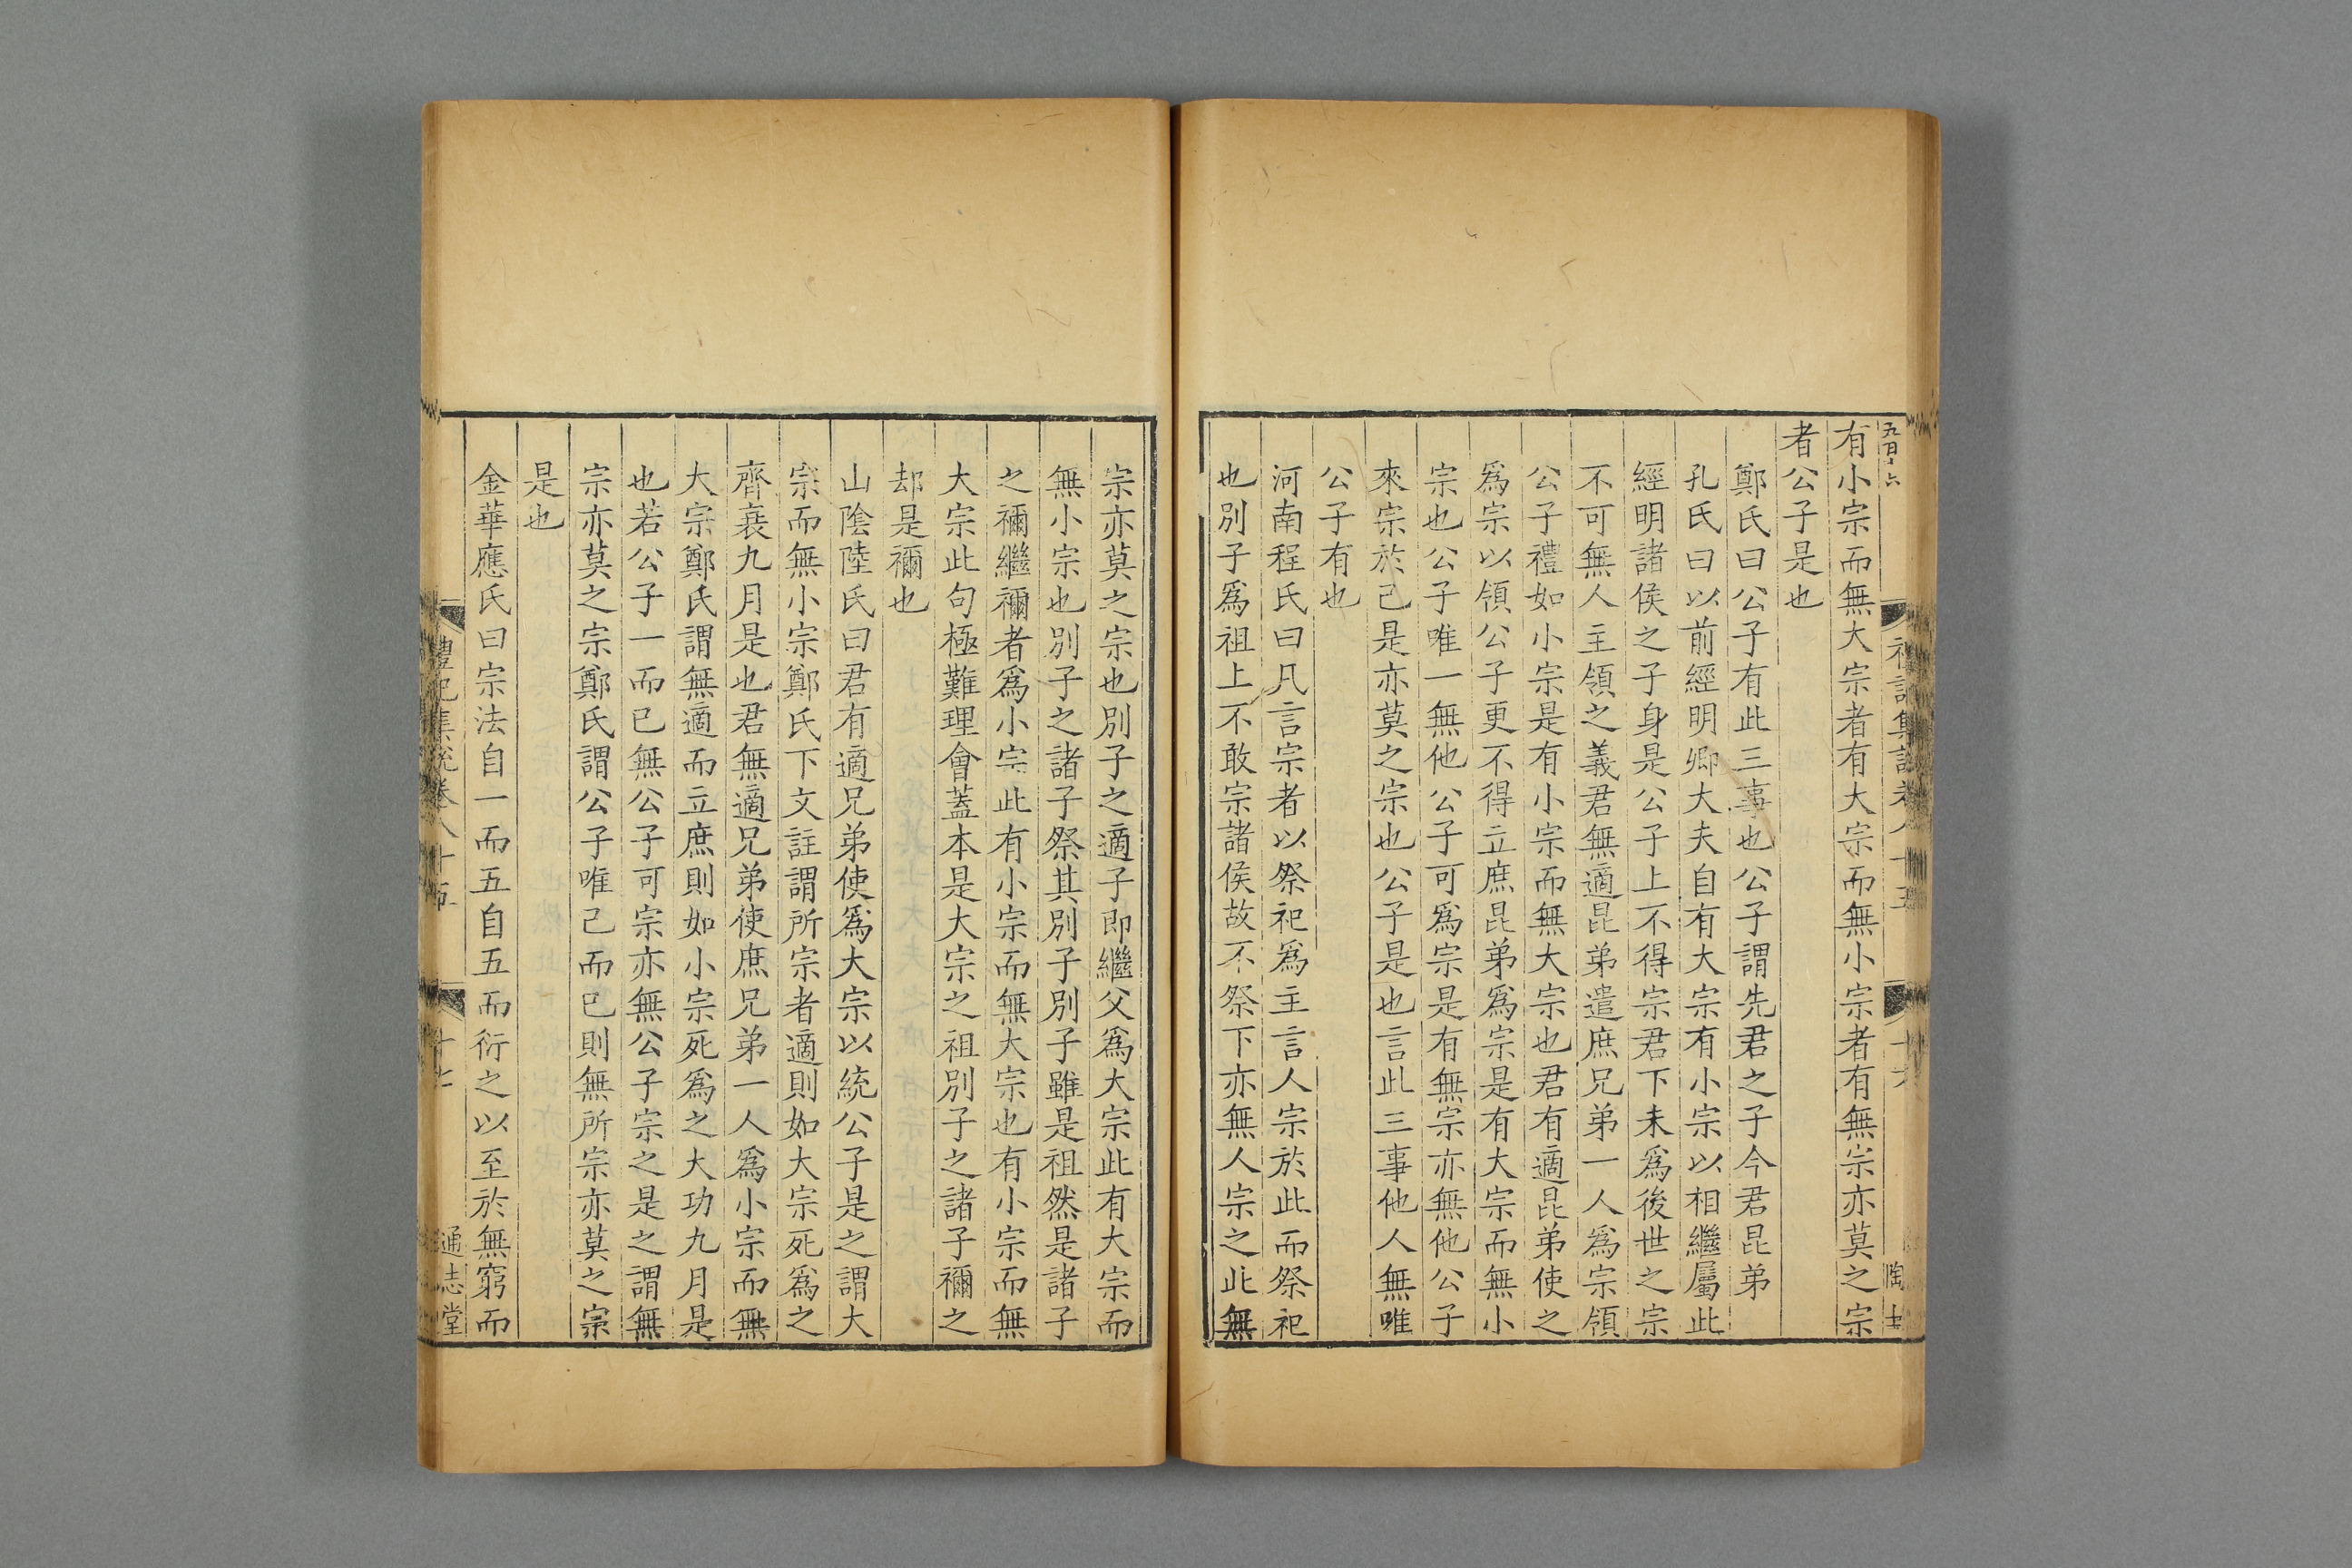 五百十六
有小宗而無大宗者有大宗而無小宗者有無宗亦莫之宗
者公子是也
鄭氏曰公子有此三事也公子謂先君之子今君昆弟
孔氏曰以前經明卿大夫自有大宗有小宗以相繼屬此
經明諸侯之子身是公子上不得宗君下未爲後世之宗
不可無人主領之義君無適昆弟遣庶兄弟一人爲宗領
公子禮如小宗是有小宗而無大宗也君有適昆弟使之
爲宗以領公子更不得立庶昆弟爲宗是有大宗而無小
宗也公子唯一無他公子可爲宗是有無宗亦無他公子
來宗於己是亦莫之宗也公子是也言此三事他人無唯
公子有也
河南程氏曰凡言宗者以祭祀爲主言人宗於此而祭祀
也別子爲祖上不敢宗諸侯故不祭下亦無人宗之此無
宗亦莫之宗也別子之適子即繼父爲大宗此有大宗而
無小宗也別子之諸子祭其別子別子雖是祖然是諸子
之禰繼禰者爲小宗此有小宗而無大宗也有小宗而無
大宗此句極難理會蓋本是大宗之祖別子之諸子禰之
却是禰也
山陰陸氏曰君有適兄弟使爲大宗以統公子是之謂大
宗而無小宗鄭氏下文註謂所宗者適則如大宗死爲之
齊衰九月是也君無適兄弟使庶兄弟一人爲小宗而無
大宗鄭氏謂無適而立庶則如小宗死爲之大功九月是
也若公子一而已無公子可宗亦無公子宗之是之謂無
宗亦莫之宗鄭氏謂公子唯己而已則無所宗亦莫之宗
是也
金華應氏曰宗法自一而五自五而衍之以至於無窮而
禮記集說卷八十五
十七
通志堂